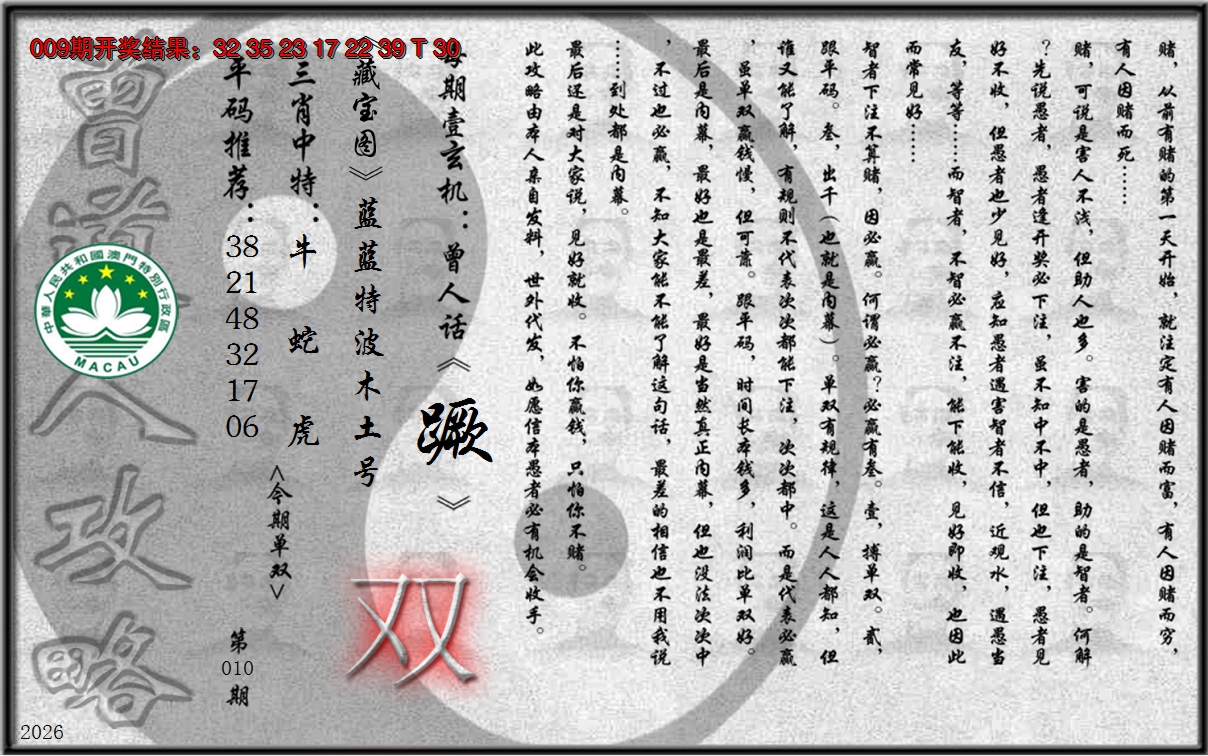 009期开奖结果：32 35 23 17 22 39 T 30
赌，从前有赌的第一天开始，就注定有人因赌而富，有人因赌而穷，
有人因赌而死……
赌，可说是害人不浅，但助人也多。害的是愚者，助的是智者。何解
？先说愚者，愚者逢开奖必下注，虽不知中不中，但也下注，愚者见
好不收，但愚者也少见好，应知愚者遇害智者不信，近观水，遇愚当
友，等等……而智者，不智必赢不注，能下能收，见好即收，也因此
而常见好……
智者下注不算赌，因必赢。何谓必赢？必赢有叁。壹，搏单双。贰，
跟平码。叁，出千（也就是内幕）。单双有规律，这是人人都知，但
谁又能了解，有规则不代表次次都能下注，次次都中。而是代表必赢
，虽单双赢钱慢，但可靠。跟平码，时间长本钱多，利润比单双好。
最后是内幕，最好也是最差，最好是当然真正内幕，但也没法次次中
，不过也必赢，不知大家能不能了解这句话，最差的相信也不用我说
……到处都是内幕。
最后还是对大家说，见好就收。不怕你赢钱，只怕你不赌。
此攻略由本人亲自发料，世外代发，如愿信本愚者必有机会收手。
每期壹玄机：曾人话《蹶》
《藏宝图》蓝蓝特波木土号
双
三肖中特：牛 蛇 虎
<今期单双>
平码推荐：
38
21
48
32
17
06
第
010
期
曾道人攻略
中華人民共和國澳門特別行政區
MACAU
2026